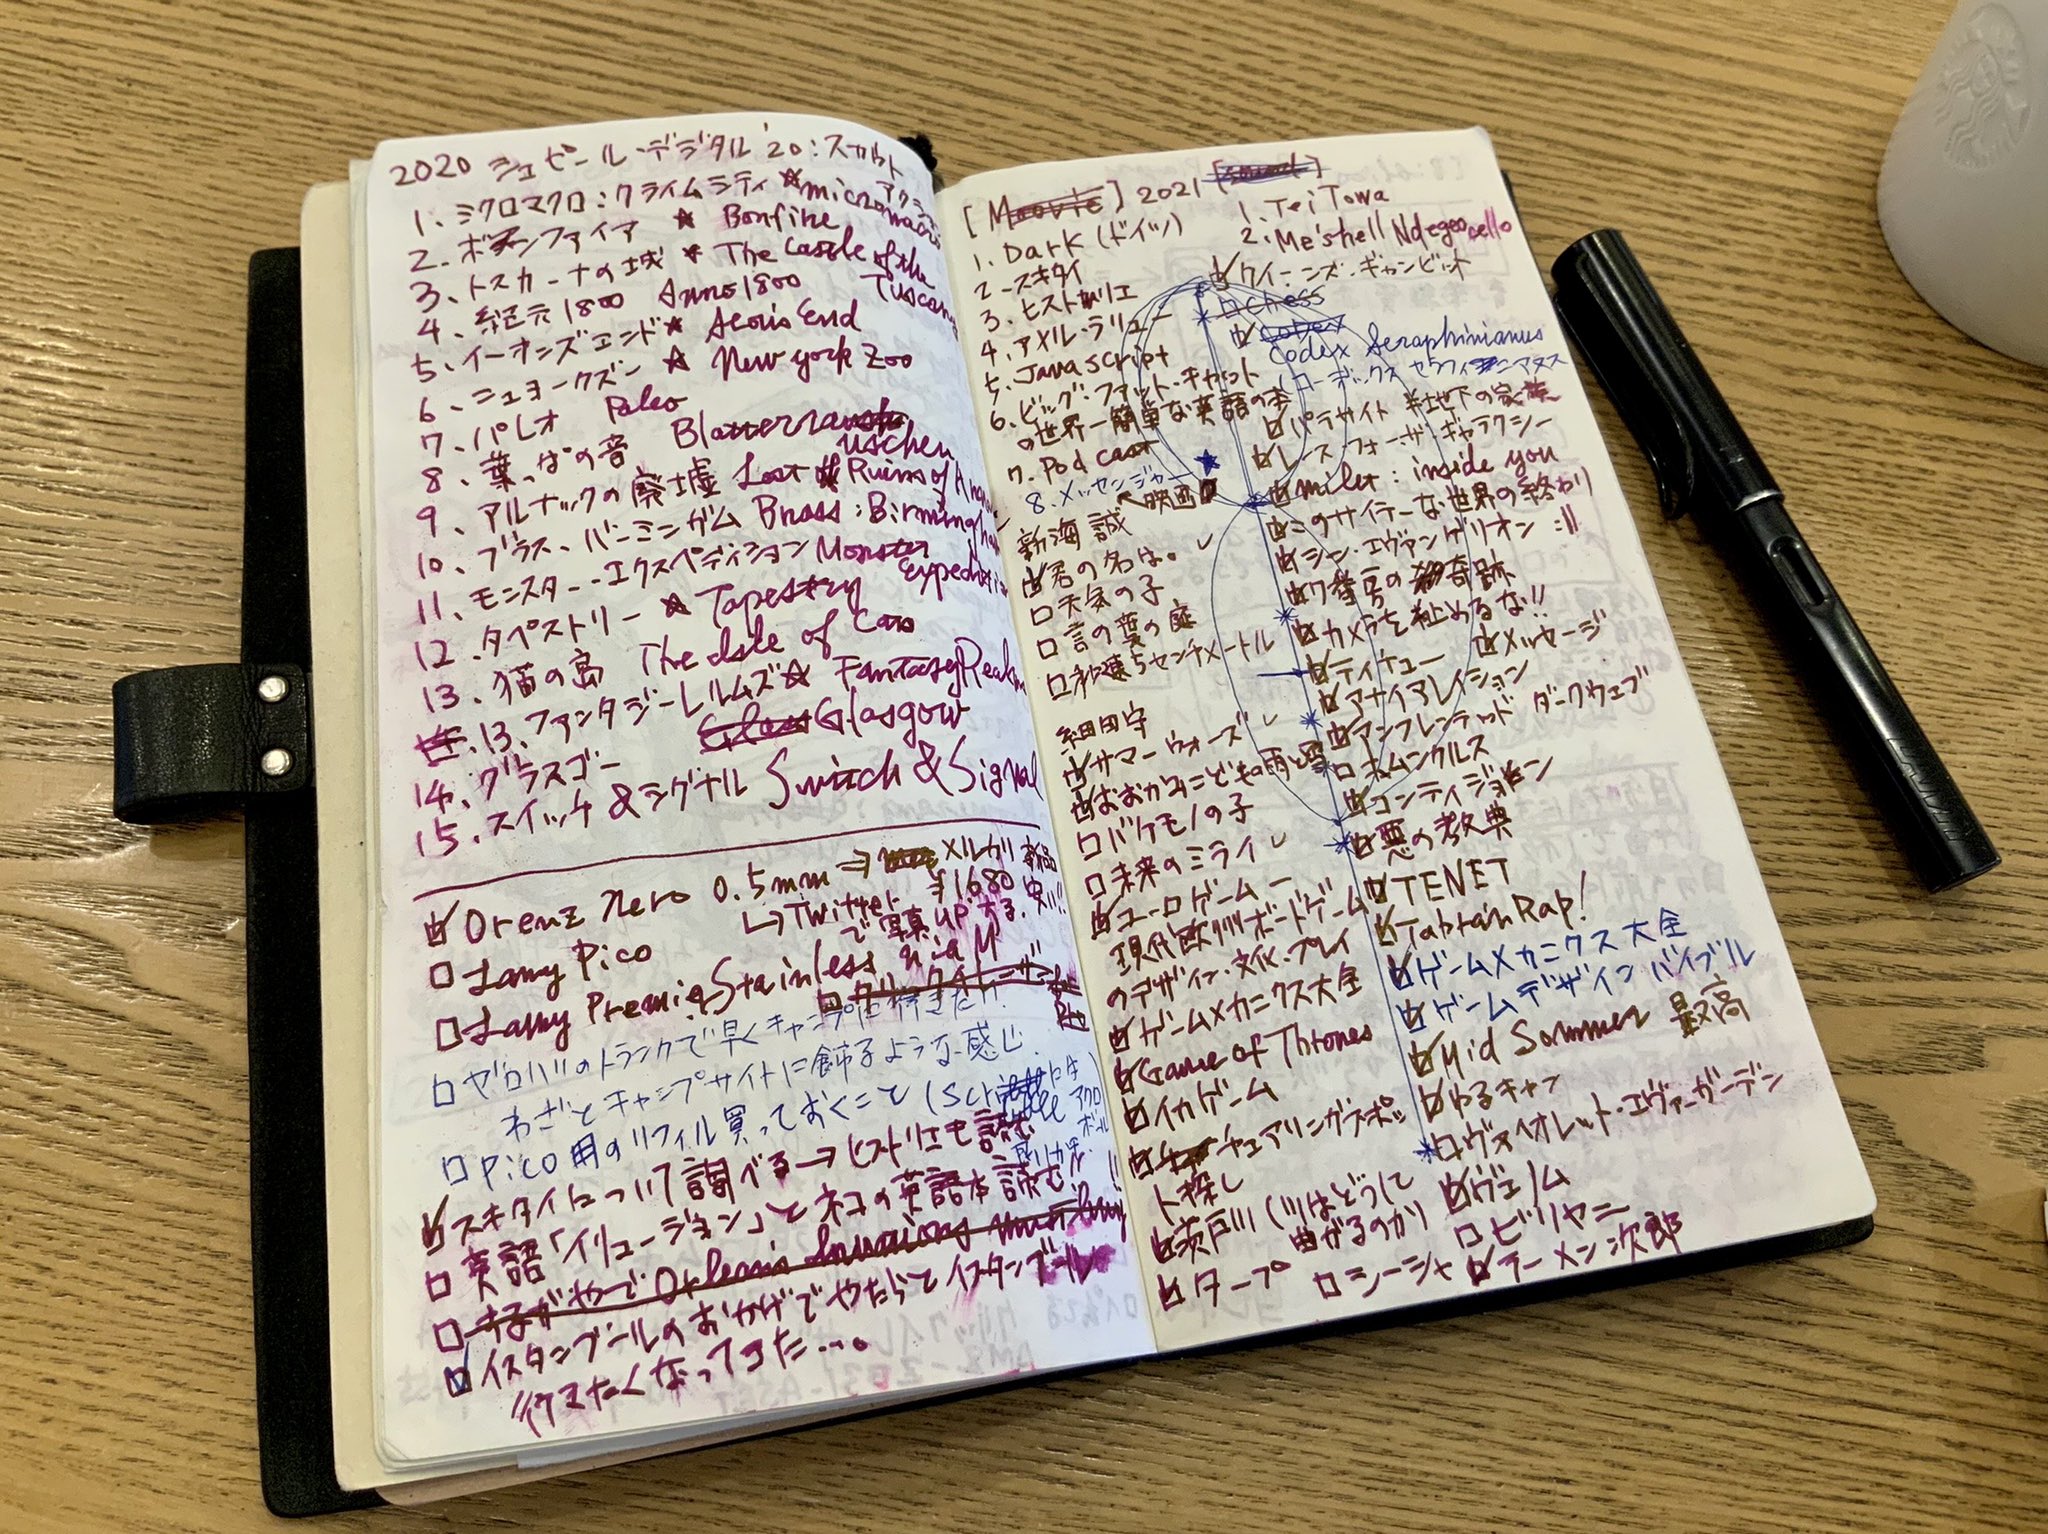 2020 シュピール・デジタル '20:スカウト
アクション
1. ミクロマクロ:クライムシティ ☆micromacro
2. ボンファイア ☆ Bonfire
3、トスカーナの城 ☆ The Castle of the Tuscany
4、紀元1800 Anno1800
5、イーオンズエンド☆ Aeon's End
6、ニューヨークズー ☆ New york Zoo
7、パレオ Paleo
8、葉っぱの音 Blatterrauschen
9、アルナックの廃墟 Lost Ruins of Arnak
10、ブラス、バーミンガム Brass:Birmingham
11、モンスターエクスペディション Monster Expedition
12.タペストリー ☆ Tapestry
13.猫の島 The Isle of Cats
13、ファンタジーレルムズ☆ Fantasy Realms
14、グラスゴー Glasgow
15.スイッチ&シグナル Switch & Signal
☑ Orenz Nero 0.5mm ⇒ メルカリ 新品 ¥1680 安い!!
↳Twitterで写真upする.
□ Lamy Pico
□ Lamy Premie Stainless
□ ゼロハリのトランクで早くキャンプに行きたい!
わざとキャンプサイトに飾るような感じ.
□ pico用のリフィル買っておくこと
☑ スキタイについて調べる→ヒストリエも読む
□ 英語「イリュージョン」とネコの英語本読む!!
□
☑ イスタンブールのおかげでやたらとイスタンブール
行きたくなってきた…。
[Movie] 2021 [sound]
1. Dark (ドイツ)
2. スキタイ
3. ヒストリエ
4. アメル・ラリュー
5. Javascript
6. ビッグ・ファット・キャット
の世界一簡単な英語の本
7. Pod cast
8. メッセンジャー
↖映画
新海 誠
☑君の名は。✓
□天気の子
□言の葉の庭
□秒速5センチメートル
細田守
☑サマーウォーズ ✓
☑おおかみこどもの雨と雪
□バケモノの子
□未来のミライ ✓
☑ユーロゲーム ー
現代欧州ボードゲーム
のデザイン・文化・プレイ
☑ゲームメカニクス大全
☑Game of Thrones
☑イカゲーム
☑チェアリングスポッ
ト探し
☑ 荻戸川(川はどうして
曲がるのか)
☑タープ □シーシャ ☑ラーメン次郎
1. Tei Towa
2. Me'shell Ndegeocello
☑クイーンズ・ギャンビット
□Chess
☑Codex
Codex Seraphinianus
(コーデックス セラフィニアヌス
□パラサイト 半地下の家族
☑レース・フォー・ザ・ギャラクシー
☑milet:inside you
☑このサイテーな世界の終わり
☑シン・エヴァンゲリオン :||
☑7番房の奇跡
☑カメラを止めるな!!
☑ティナー ☑メッセージ
☑アナイアレイション
☑アンフレンデッド ダークウェブ
□ホムンクルス
☑コンティジョン
☑悪の教典
☑TENET
☑Tabrain Rap!
☑ゲームメカニクス大全
☑ゲームデザインバイブル
☑Mid Sommer 最高
☑ゆるキャン
□ヴァイオレット・エヴァーガーデン
☑ヴェノム
□ビリヤニ